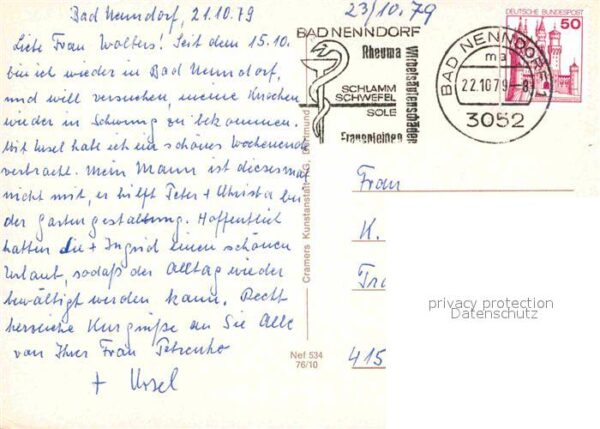 Bad Nenndorf, 21.10.79
Liebe Frau Wolters! Seit dem 15.10.
bin ich wieder in Bad Nenndorf,
und will versuchen, meine Knochen
wieder in Schwung zu bekommen.
Mit Ursel habe ich ein schönes Wochenend
verbracht. Mein Mann ist diesesmal
nicht mit, er hilft Peter + Christa bei
der Gartengestaltung. Hoffentlich
hatten Sie + Ingrid einen schönen
Urlaub, sodaß der Alltag wieder
bewältigt werden kann. Recht
herzliche Kurgrüße an Sie Alle
von Ihrer Frau
+ Ursel
23/10.79
BAD NENNDORF
Rheuma
Wirbelsäulenschäden
SCHLAMM
SCHWEFEL
SOLE
Frauenleiden
BAD NENNDORF 1
ma
22.10.79-8
3052
DEUTSCHE BUNDESPOST
50
Cramers Kunstanstalt KG, Dortmund
Nef 534
76/10
Frau
K.
415
privacy protection
Datenschutz